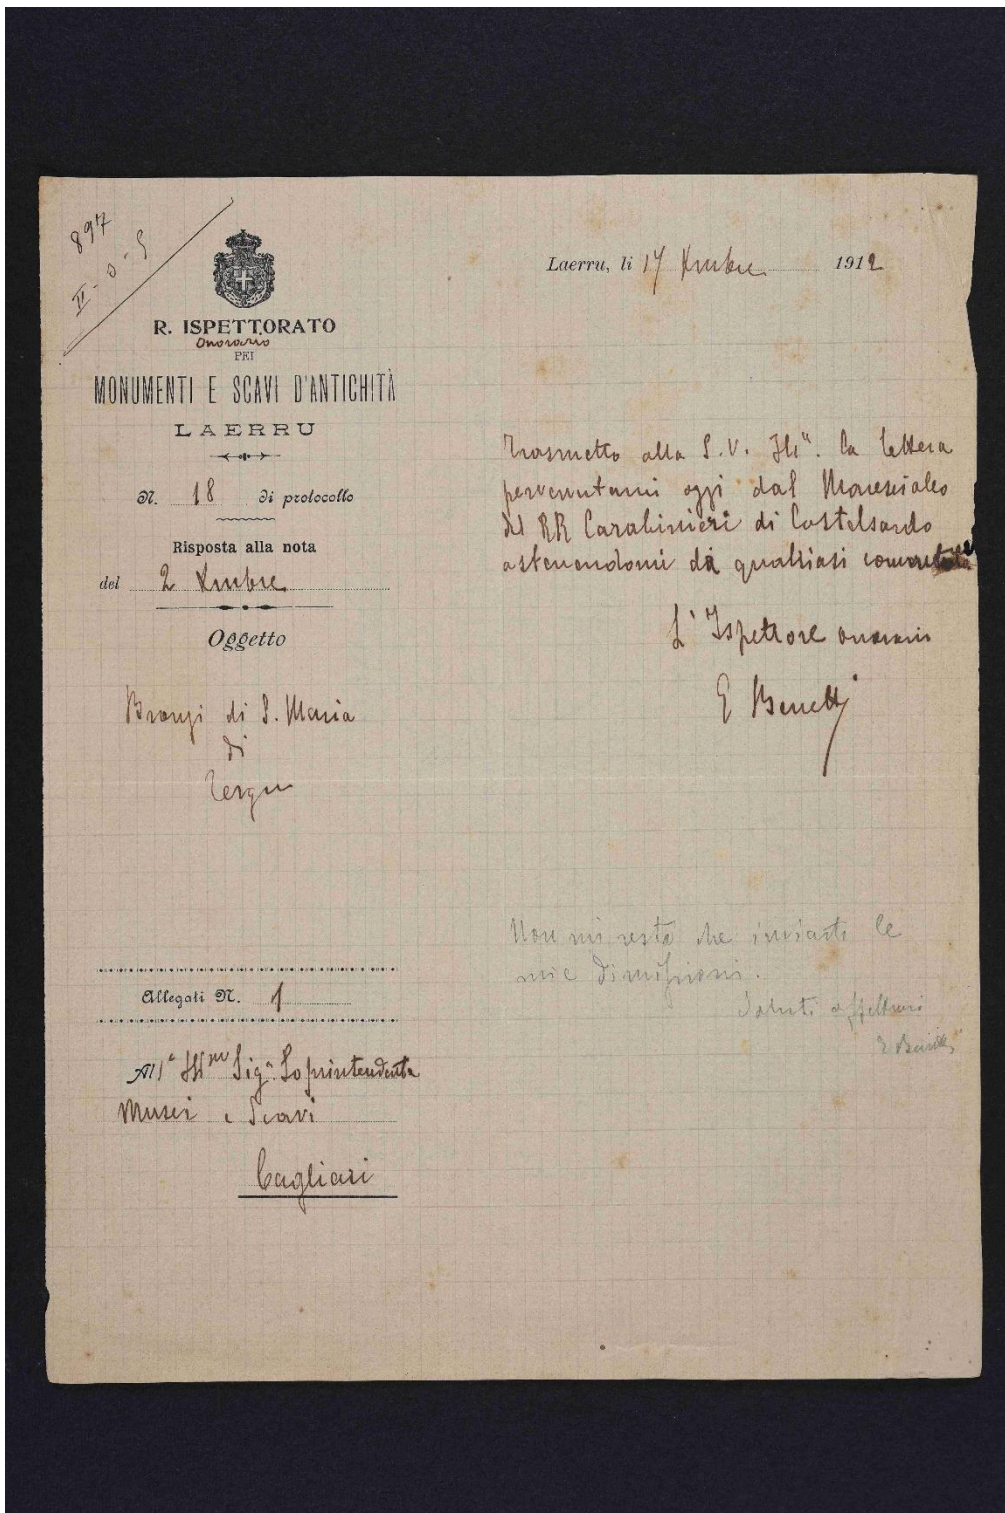 897
II-0-5
R. ISPETTORATO
Onorario
PEI
MONUMENTI E SCAVI D'ANTICHITÀ
LAERRU
N. 18 di protocollo
Risposta alla nota
del 2 Xmbre
Oggetto
Bronzi di S. Maria
di
Tergu
Allegati N. 1
All' Ill.mo Sig. Soprintendente
Musei e Scavi
Cagliari
Laerru, li 17 Xmbre 1912
Trasmetto alla S. V. Ill.a la lettera
pervenutami oggi dal Maresciallo
dei RR Carabinieri di Castelsardo
astenendomi da qualsiasi
L'Ispettore onorario
E Benetti
Non mi resta che inviarti le
mie dimissioni.
Saluti affettuosi
E Benetti